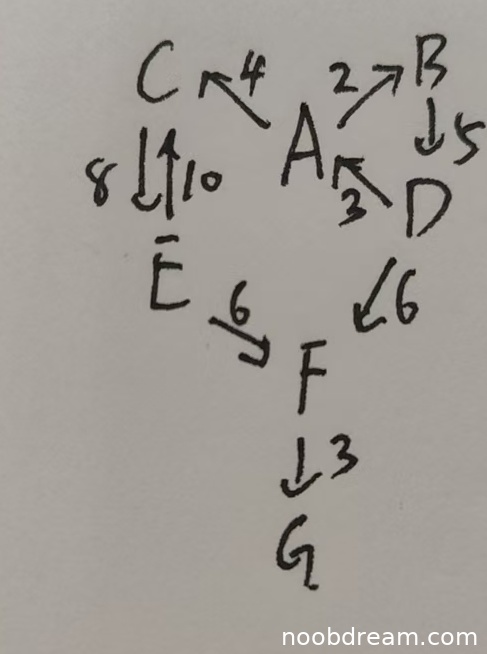 C 4 2 B
A 5
8 10 3 D
E
6 6
F
3
G
noobdream.com